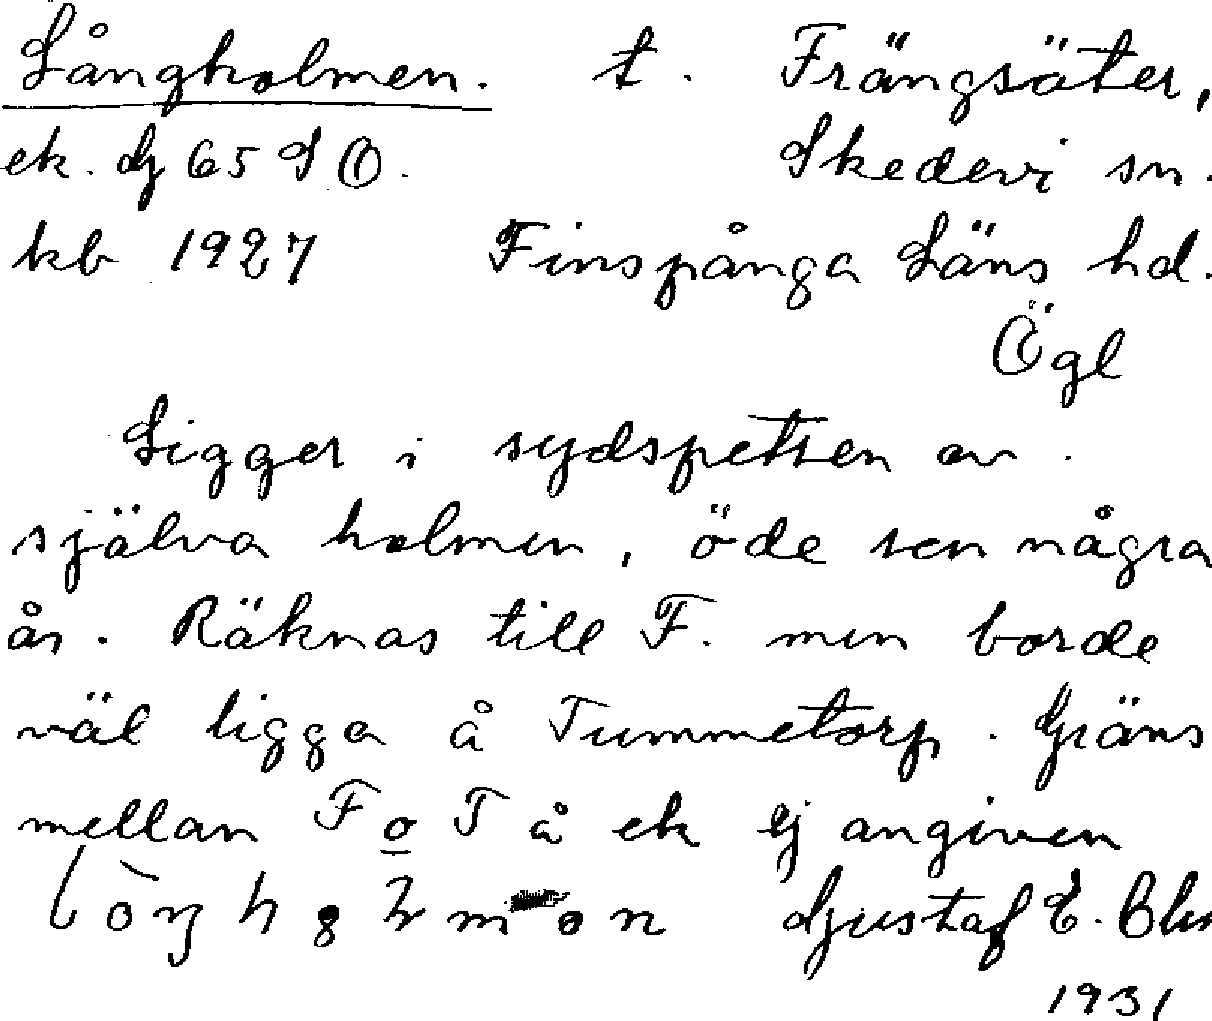 Långholmen. t. Frängsäter,
ek. dj 65 S O. Skedevi sn.
kb 1927 Finspånga Läns hd.
Ögl
Ligger i sydspetsen av
själva holmen, öde sen några
år. Räknas till F. men borde
väl ligga å Tummetorp. Gräns
mellan F o T å ek ej angiven
Gustaf E. Blm
1931